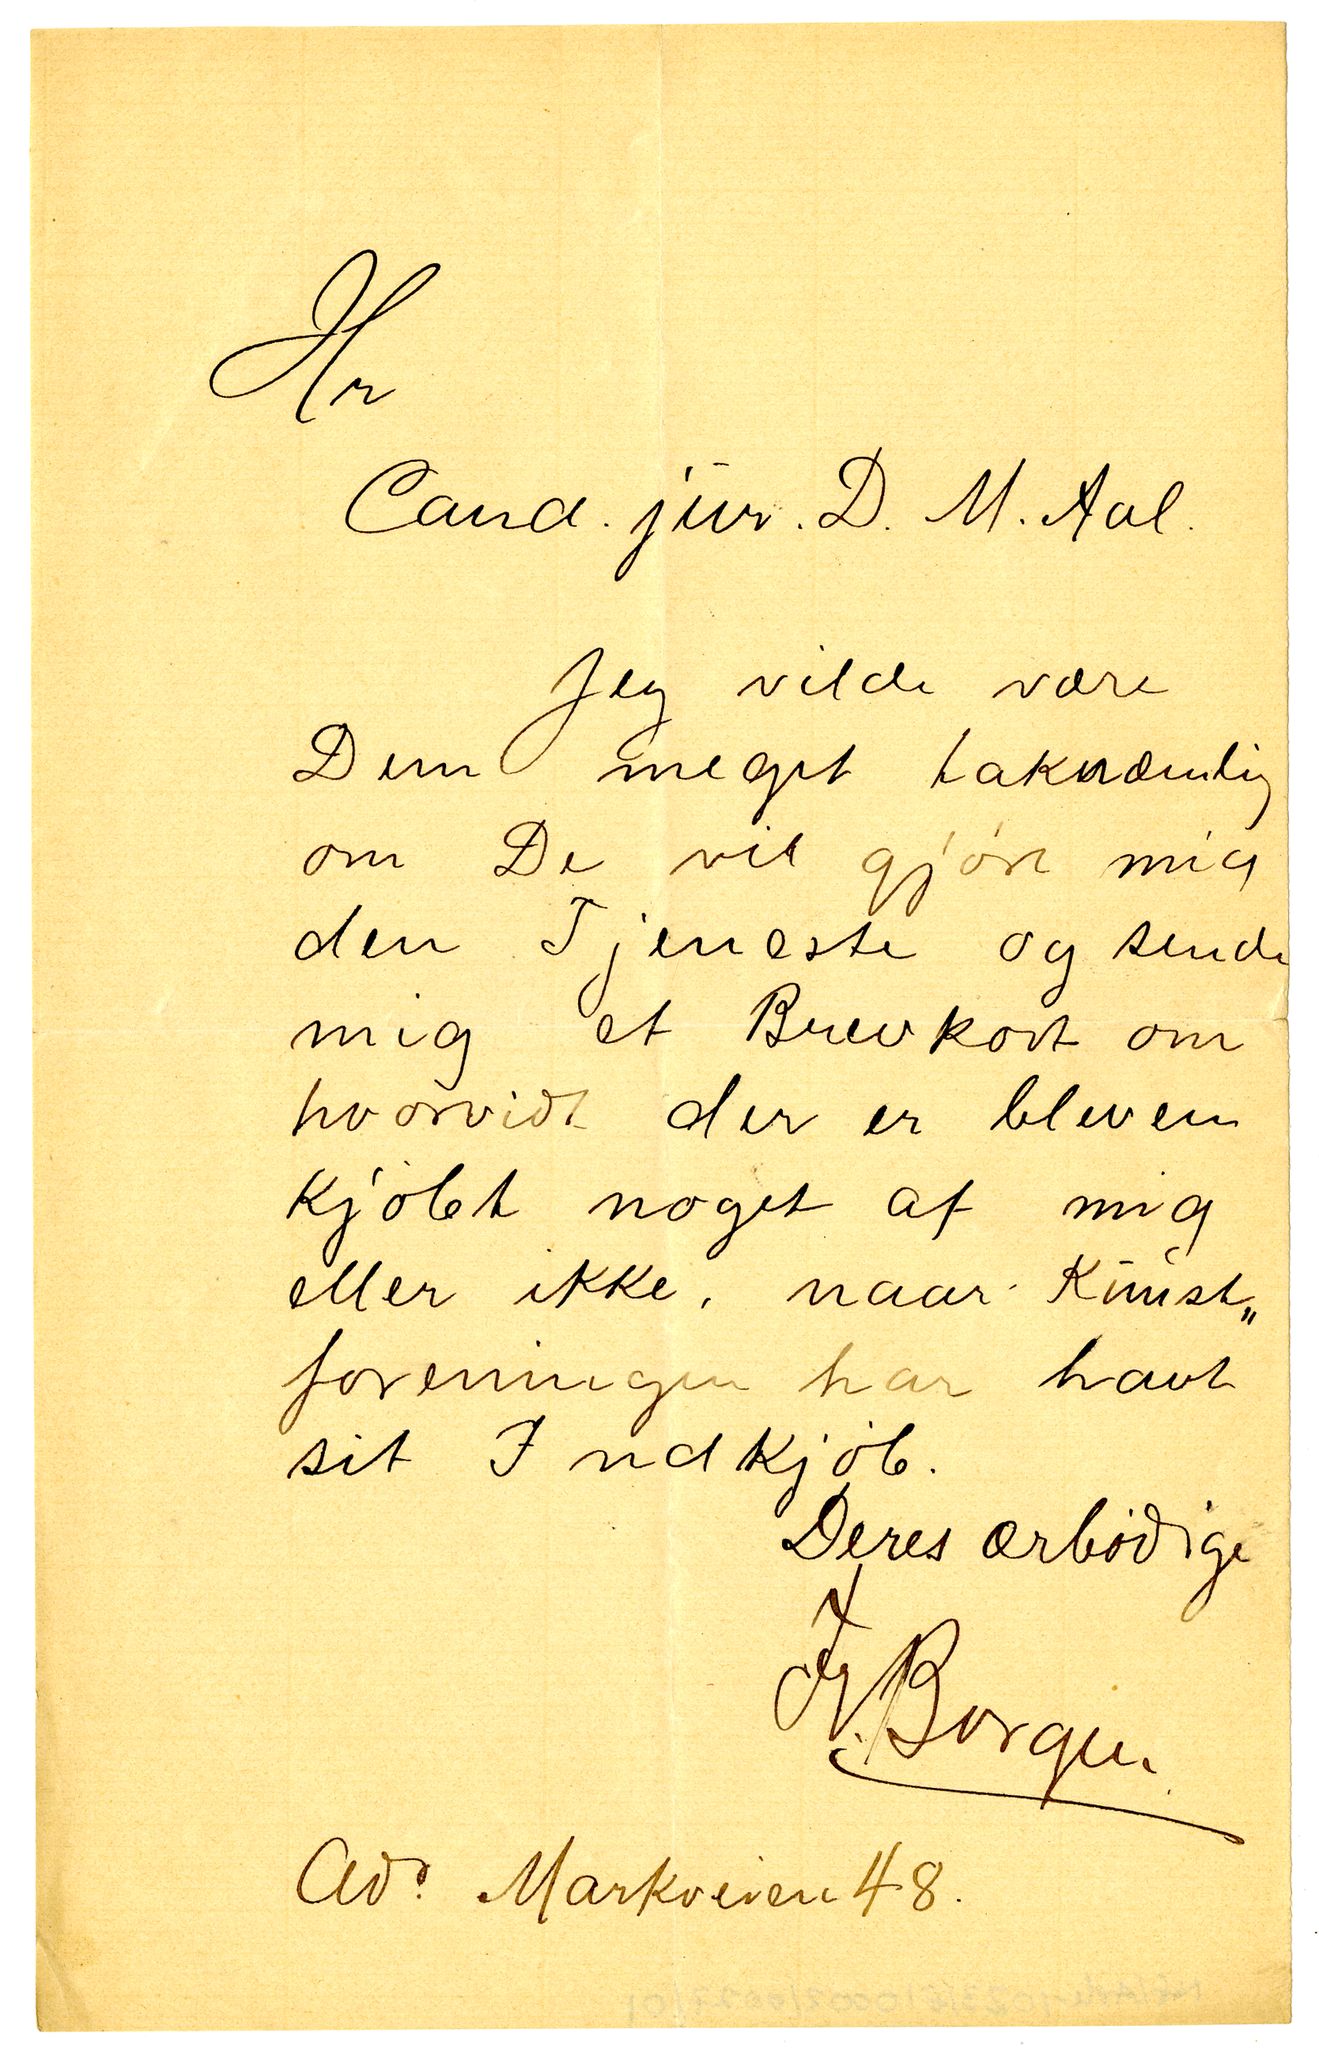 Hr
Cand. jur. D. M. Aal.
Jeg vilde være
Dem meget taknæmlig
om De vil gjöre mig
den Tjeneste og sende
mig et Brevkort om
hvorvidt der er bleven
kjöbt noget af mig
eller ikke, naar Kunst„
foreningen har havt
sit Indkjöb.
Deres ærbödige
Fr. Borgen.
Adr. Markveien 48.